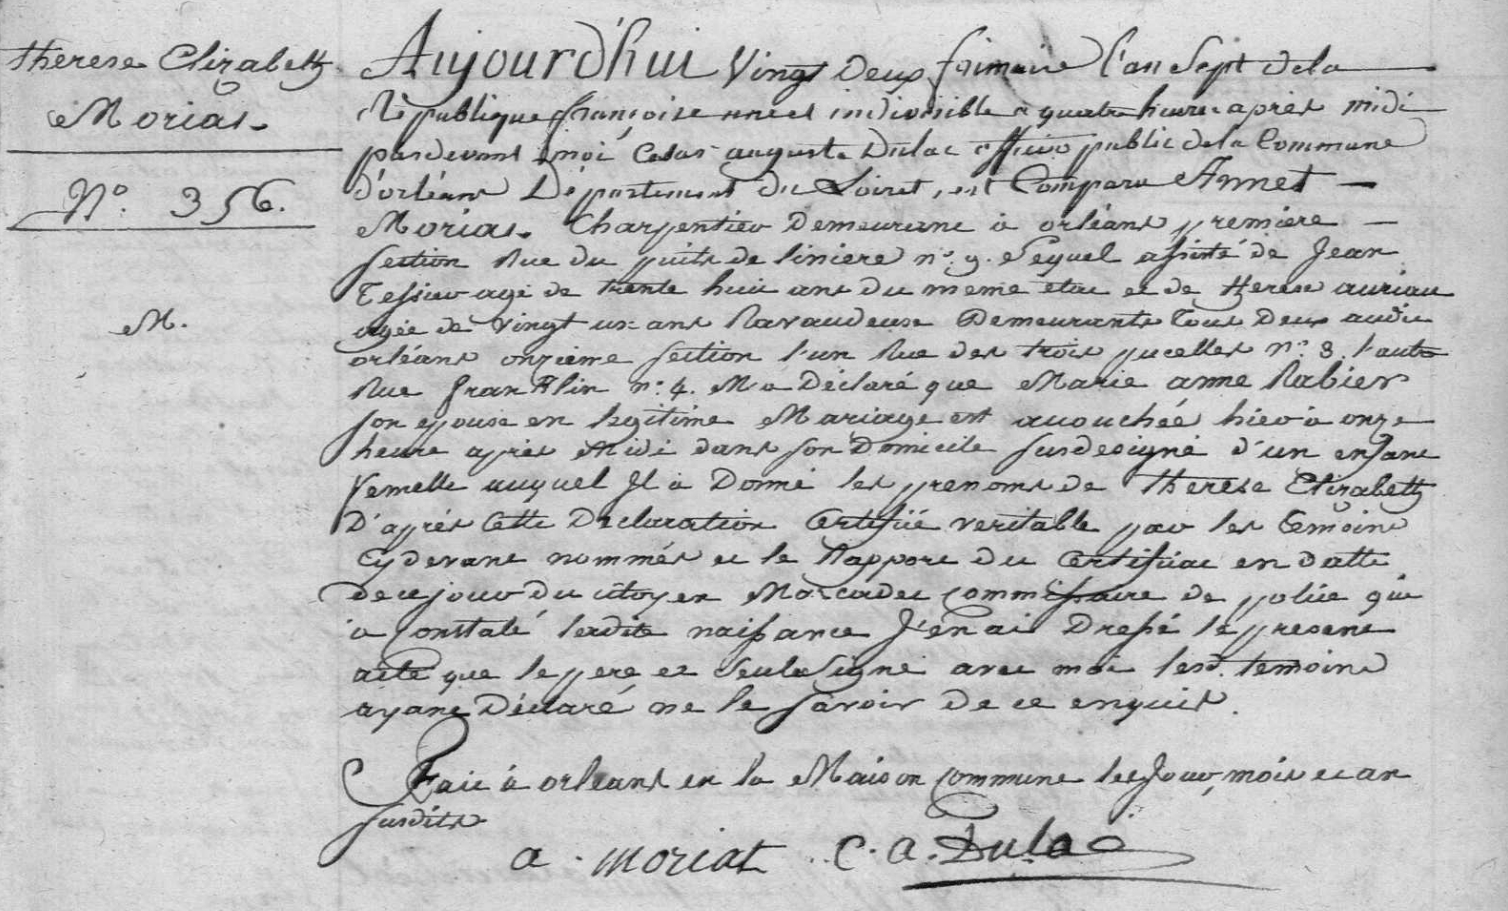 Therese Elizabeth
Morias.
N°. 356.
M.
Aujourd'hui Vingt Deux frimaire l'an Sept de la
République françoise une et indivisible a quatre heures après midi
pardevant moi Cesar auguste Dulac officier public de la Commune
d'orléans Département du Loiret, est Comparu Annet
Morias. Charpentier Demeurant à orléans premiere
section Rue du puits de liniere n°. 9. Lequel assisté de Jean
Tessier agé de trente huit ans du meme etat et de therese auriau
agée de vingt un ans Ravaudeuse Demeurants tous Deux audit
orléans onzieme section l'un Rue des trois pucelles n°. 8. l'autre
Rue franklin n°. 4. M'a Déclaré que Marie anne Rabier
son epouse en legitime Mariage est accouchée hier à onze
heure après Midi dans son Domicile susdesigné d'un enfant
femelle auquel Il à Donné les prenoms de therese Elizabeth
D'après Cette Declaration Certifiée veritable par les temoins
Cydevant nommés et le Rapport du Certificat en datte
de ce jour du citoyen Marcadet commissaire de police qui
à Constaté ladite naissance J'en ai Dressé le present
acte que le pere et seul Signé avec moi lesd. temoins
ayant Déclaré ne le savoir de ce enquis.
Fait à orleans en la Maison commune les Jour, mois et an
susdits
a. moriat C. A. Dulac